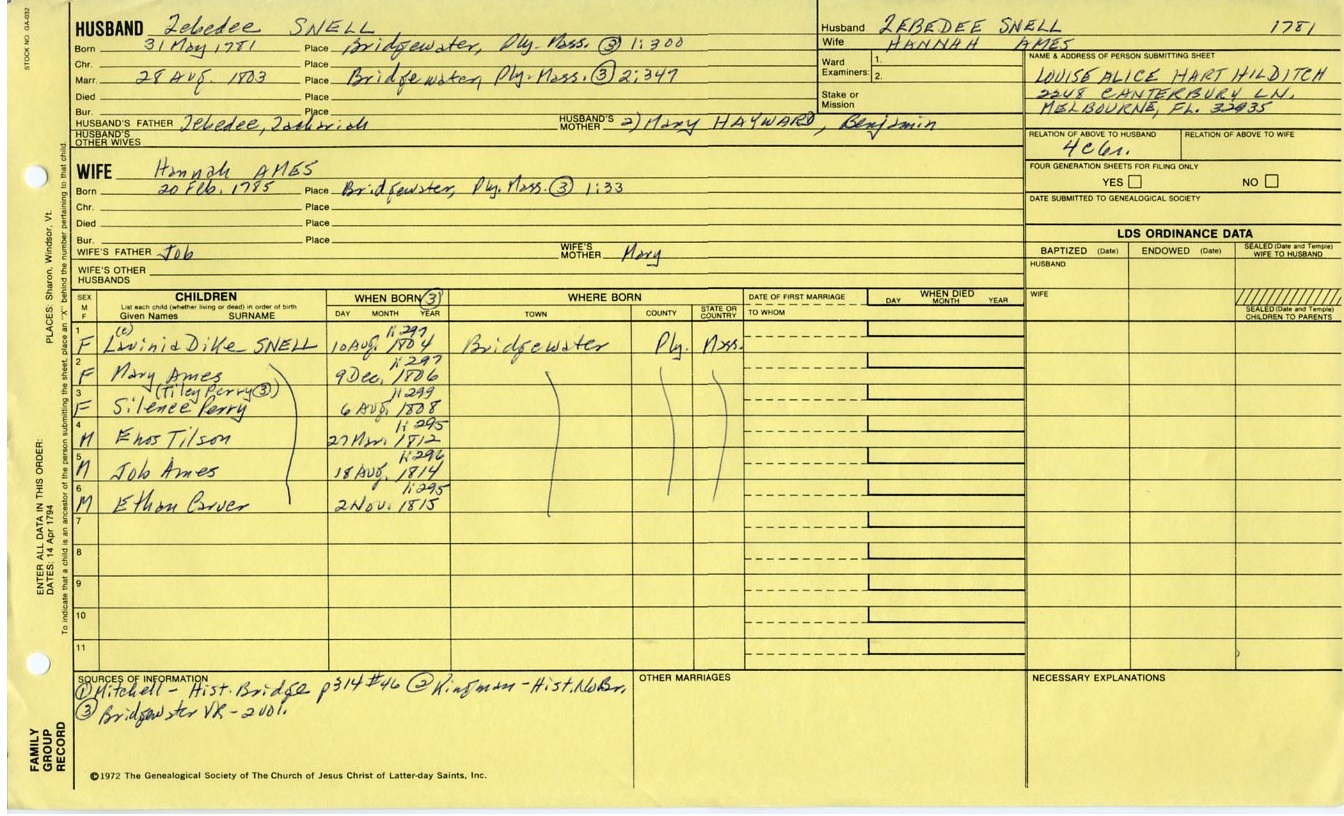 STOCK NO. GA-032
HUSBAND Zebedee SNELL
Born 31 May 1781 Place Bridgewater, Ply. Mass. ③ 1:300
Chr. Place
Marr. 28 Aug. 1803 Place Bridgewater, Ply. Mass. ③ 2:347
Died Place
Bur. Place
HUSBAND'S FATHER Zebedee, Zachariah HUSBAND'S MOTHER 2) Mary HAYWARD, Benjamin
HUSBAND'S OTHER WIVES
WIFE Hannah AMES
Born 20 Feb. 1785 Place Bridgewater, Ply. Mass. ③ 1:33
Chr. Place
Died Place
Bur. Place
WIFE'S FATHER Job WIFE'S MOTHER Mary
WIFE'S OTHER HUSBANDS
Husband ZEBEDEE SNELL 1781
Wife HANNAH AMES
Ward Examiners: 1.
2.
Stake or Mission
NAME & ADDRESS OF PERSON SUBMITTING SHEET
LOUISE ALICE HART HILDITCH
2248 CANTERBURY LN.
MELBOURNE, FL. 32935
RELATION OF ABOVE TO HUSBAND RELATION OF ABOVE TO WIFE
4c6r.
FOUR GENERATION SHEETS FOR FILING ONLY
YES NO
DATE SUBMITTED TO GENEALOGICAL SOCIETY
LDS ORDINANCE DATA
BAPTIZED (Date) ENDOWED (Date) SEALED (Date and Temple) WIFE TO HUSBAND
HUSBAND
WIFE
SEALED (Date and Temple) CHILDREN TO PARENTS
SEX M F CHILDREN WHEN BORN ③ WHERE BORN DATE OF FIRST MARRIAGE WHEN DIED
List each child (whether living or dead) in order of birth
Given Names SURNAME DAY MONTH YEAR TOWN COUNTY STATE OR COUNTRY TO WHOM DAY MONTH YEAR
(e) 1:297
1 F Lavinia Dike SNELL 10 Aug. 1804 Bridgewater Ply. Mass.
1:297
2 F Mary Ames 9 Dec. 1806
(Tiley Perry ③) 1:299
3 F Silence Perry 6 Aug. 1808
1:295
4 M Enos Tilson 27 Mar. 1812
1:296
5 M Job Ames 18 Aug. 1814
1:295
6 M Ethan Carver 2 Nov. 1815
7
8
9
10
11
SOURCES OF INFORMATION
① Mitchell - Hist. Bridge p314 #46 ② Kingman - Hist. No Br.
③ Bridgewater VR - 2 vol.
OTHER MARRIAGES
NECESSARY EXPLANATIONS
©1972 The Genealogical Society of The Church of Jesus Christ of Latter-day Saints, Inc.
FAMILY GROUP RECORD
ENTER ALL DATA IN THIS ORDER:
DATES: 14 Apr 1794
PLACES: Sharon, Windsor, Vt.
To indicate that a child is an ancestor of the person submitting the sheet, place an "X" behind the number pertaining to that child.